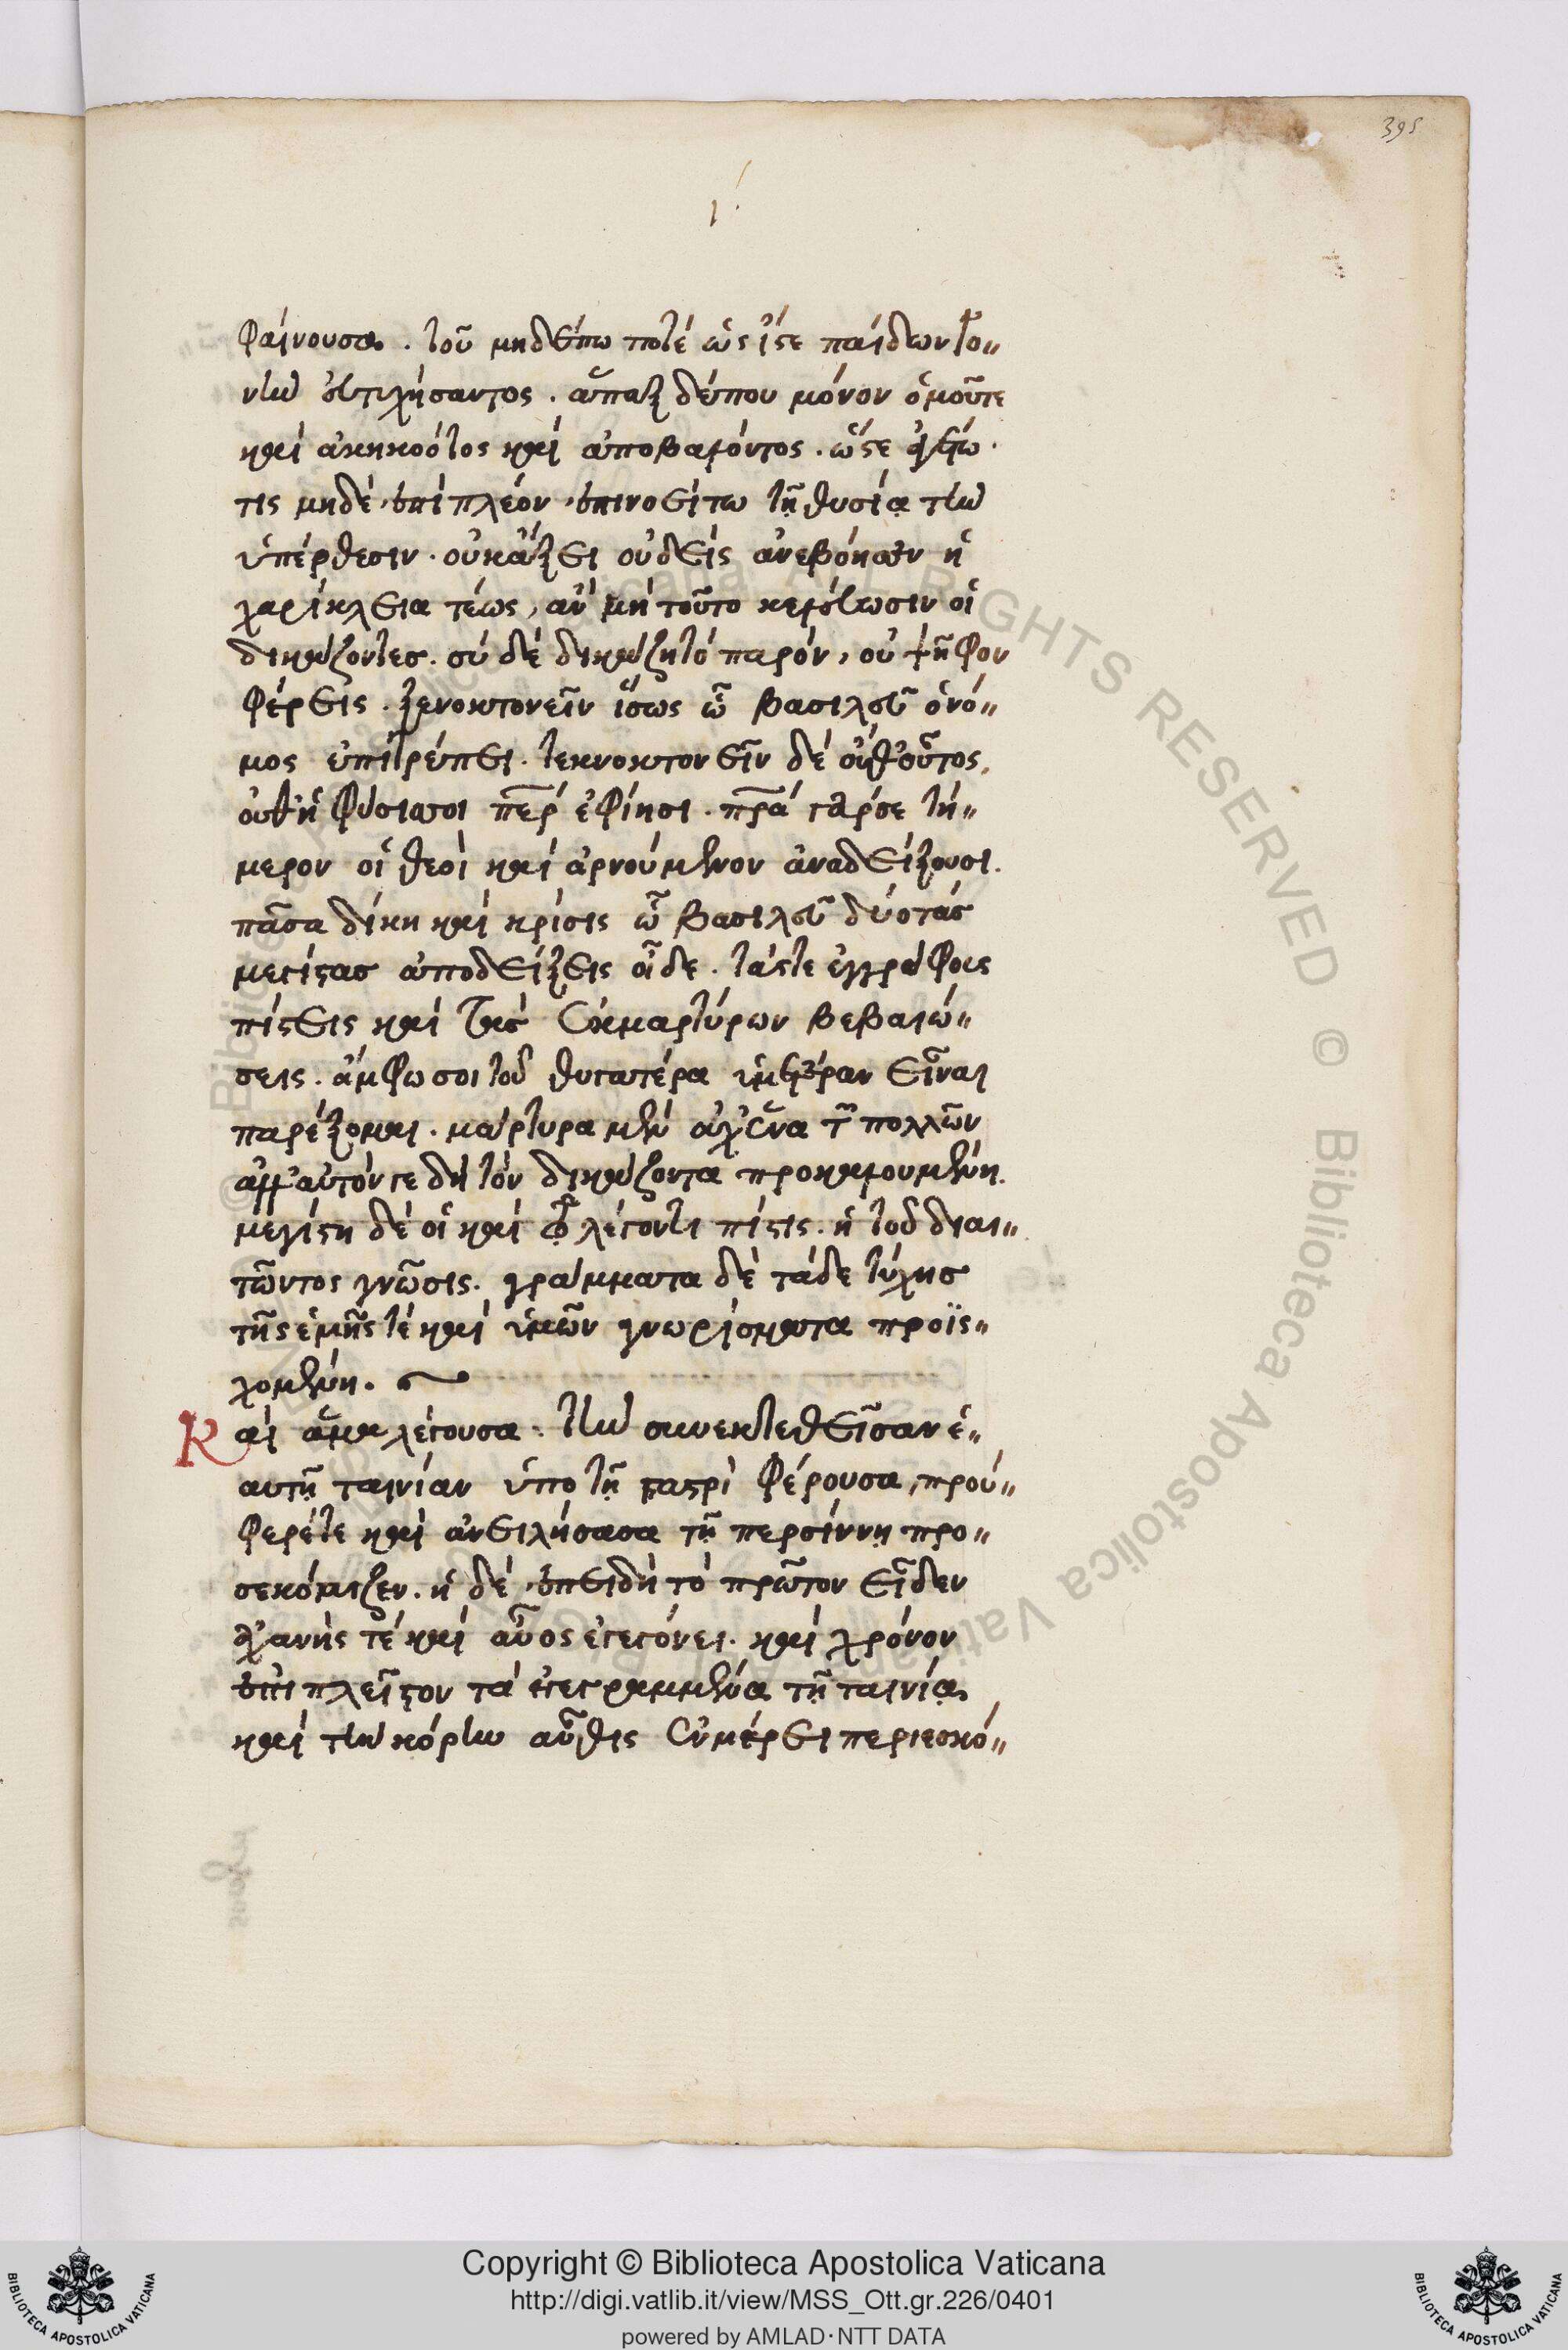 395
ι´
φαίνουσα. τοῦ μηδέπω ποτὲ ὥς ἴστε παίδων γο„
νὴν εὐτυχήσαντος. ἅπαξ δέπου μόνον ὁμοῦτε
καὶ ἀκηκοότος καὶ ἀποβαλόντος. ὥστε
τις μηδὲ ἐπὶ πλέον ἐπινοείτω τῇ θυσίᾳ τὴν
ὑπέρθεσιν. οὐκ ἄξει οὐδεὶς ἀνεβόησεν ἡ
χαρίκλεια τέως, ἂν μὴ τοῦτο κελεύωσιν οἱ
δικάζοντεσ. σὺ δὲ δικάζῃ τὸ παρόν, οὐ ψῆφον
φέρεις. ξενοκτονεῖν ἴσως ὦ βασιλεῦ ὁ νό„
μος ἐπιτρέπει. τεκνοκτονεῖν δὲ οὔθ οὗτος,
οὔθ ἡ φύσις σοι περ ἐφίησι. πρα γάρ σε τή„
μερον οἱ θεοὶ καὶ ἀρνούμενον ἀναδείξουσι.
πᾶσα δίκη καὶ κρίσις ὦ βασιλεῦ δύο τὰς
μεγίστασ ἀποδείξεις οἶδε. τάς τε ἐγγράφους
πίστεις καὶ τὰς ἐκ μαρτύρων βεβαιώ„
σεις. ἄμφω σοι τοῦ θυγατέρα ὑμετέραν εἶναι
παρέξομαι. μάρτυρα μὲν οὐχ ἕνα τῶν πολλῶν
ἀλλ᾽ αὐτόν γε δὴ τὸν δικάζοντα προκαλουμένη.
μεγίστη δὲ οἱ καὶ λέγοντι πίστις. ἡ τοῦ διαι„
τῶντος γνῶσις. γράμματα δὲ τάδε τύχησ
τῆς ἐμῆς τὲ καὶ ὑμῶν γνωρίσματα προϊσ„
χομένη.
Καὶ ἅμα λέγουσα. τὴν συνεκτεθεῖσαν ἑ„
αυτῇ ταινίαν ὑπὸ τῇ γαστρὶ φέρουσα, πρού„
φερέτε καὶ ἀνειλήσασα τῇ περσίννῃ προ„
σεκόμιζεν. ἡ δὲ ἐπειδὴ τὸ πρῶτον εἶδεν
ἀχανής τὲ καὶ αὖος ἐγεγόνει. καὶ χρόνον
ἐπὶ πλεῖστον τὰ ἐγγεγραμμένα τῇ ταινίᾳ
καὶ τὴν κόρην αὖθις ἐν μέρει περιεσκό„
Copyright © Biblioteca Apostolica Vaticana
http://digi.vatlib.it/view/MSS_Ott.gr.226/0401
powered by AMLAD·NTT DATA